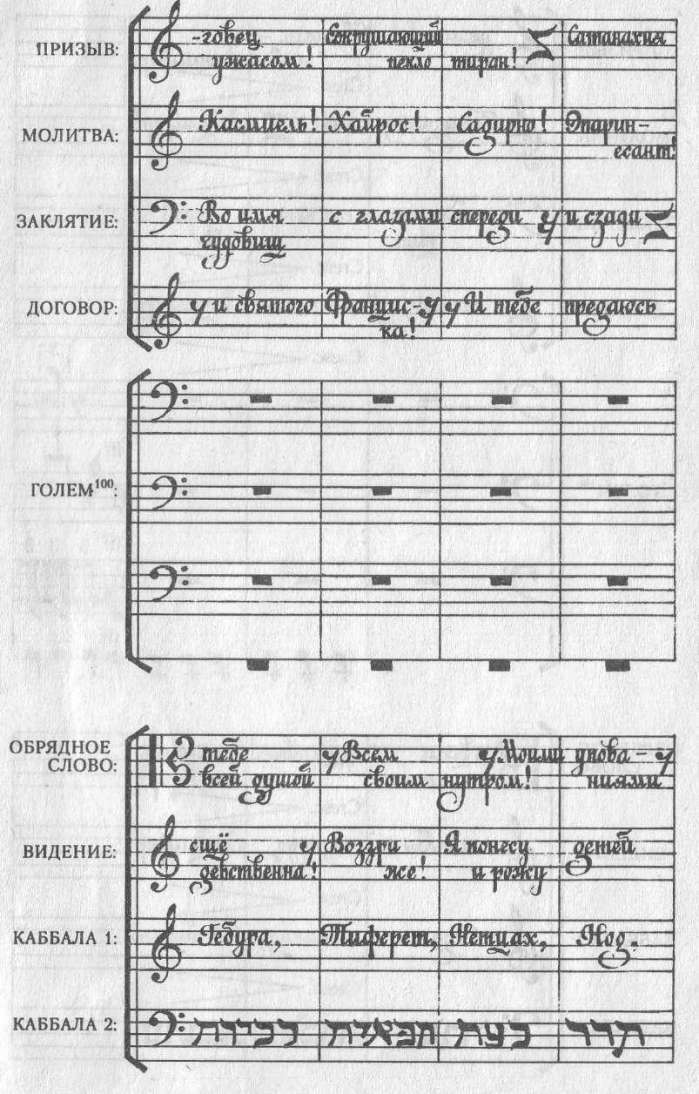 ПРИЗЫВ: -говец Сокрушающий Сатанахия
ужасом! пекло тиран!
МОЛИТВА: Касмиель! Хайрос! Садирно! Эпарин-
есант!
ЗАКЛЯТИЕ: Во имя с глазами спереди и сзади
чудовищ
ДОГОВОР: и святого Францис- И тебе предаюсь
ка!
ГОЛЕМ¹⁰⁰:
ОБРЯДНОЕ тебе Всем Моими упова-
СЛОВО: всей душой своим нутром! ниями
ВИДЕНИЕ: ещё Воззри Я понесу детей
девственна! же! и рожу
КАББАЛА 1: Гебура, Тиферет, Нетцах, Ход,
КАББАЛА 2: